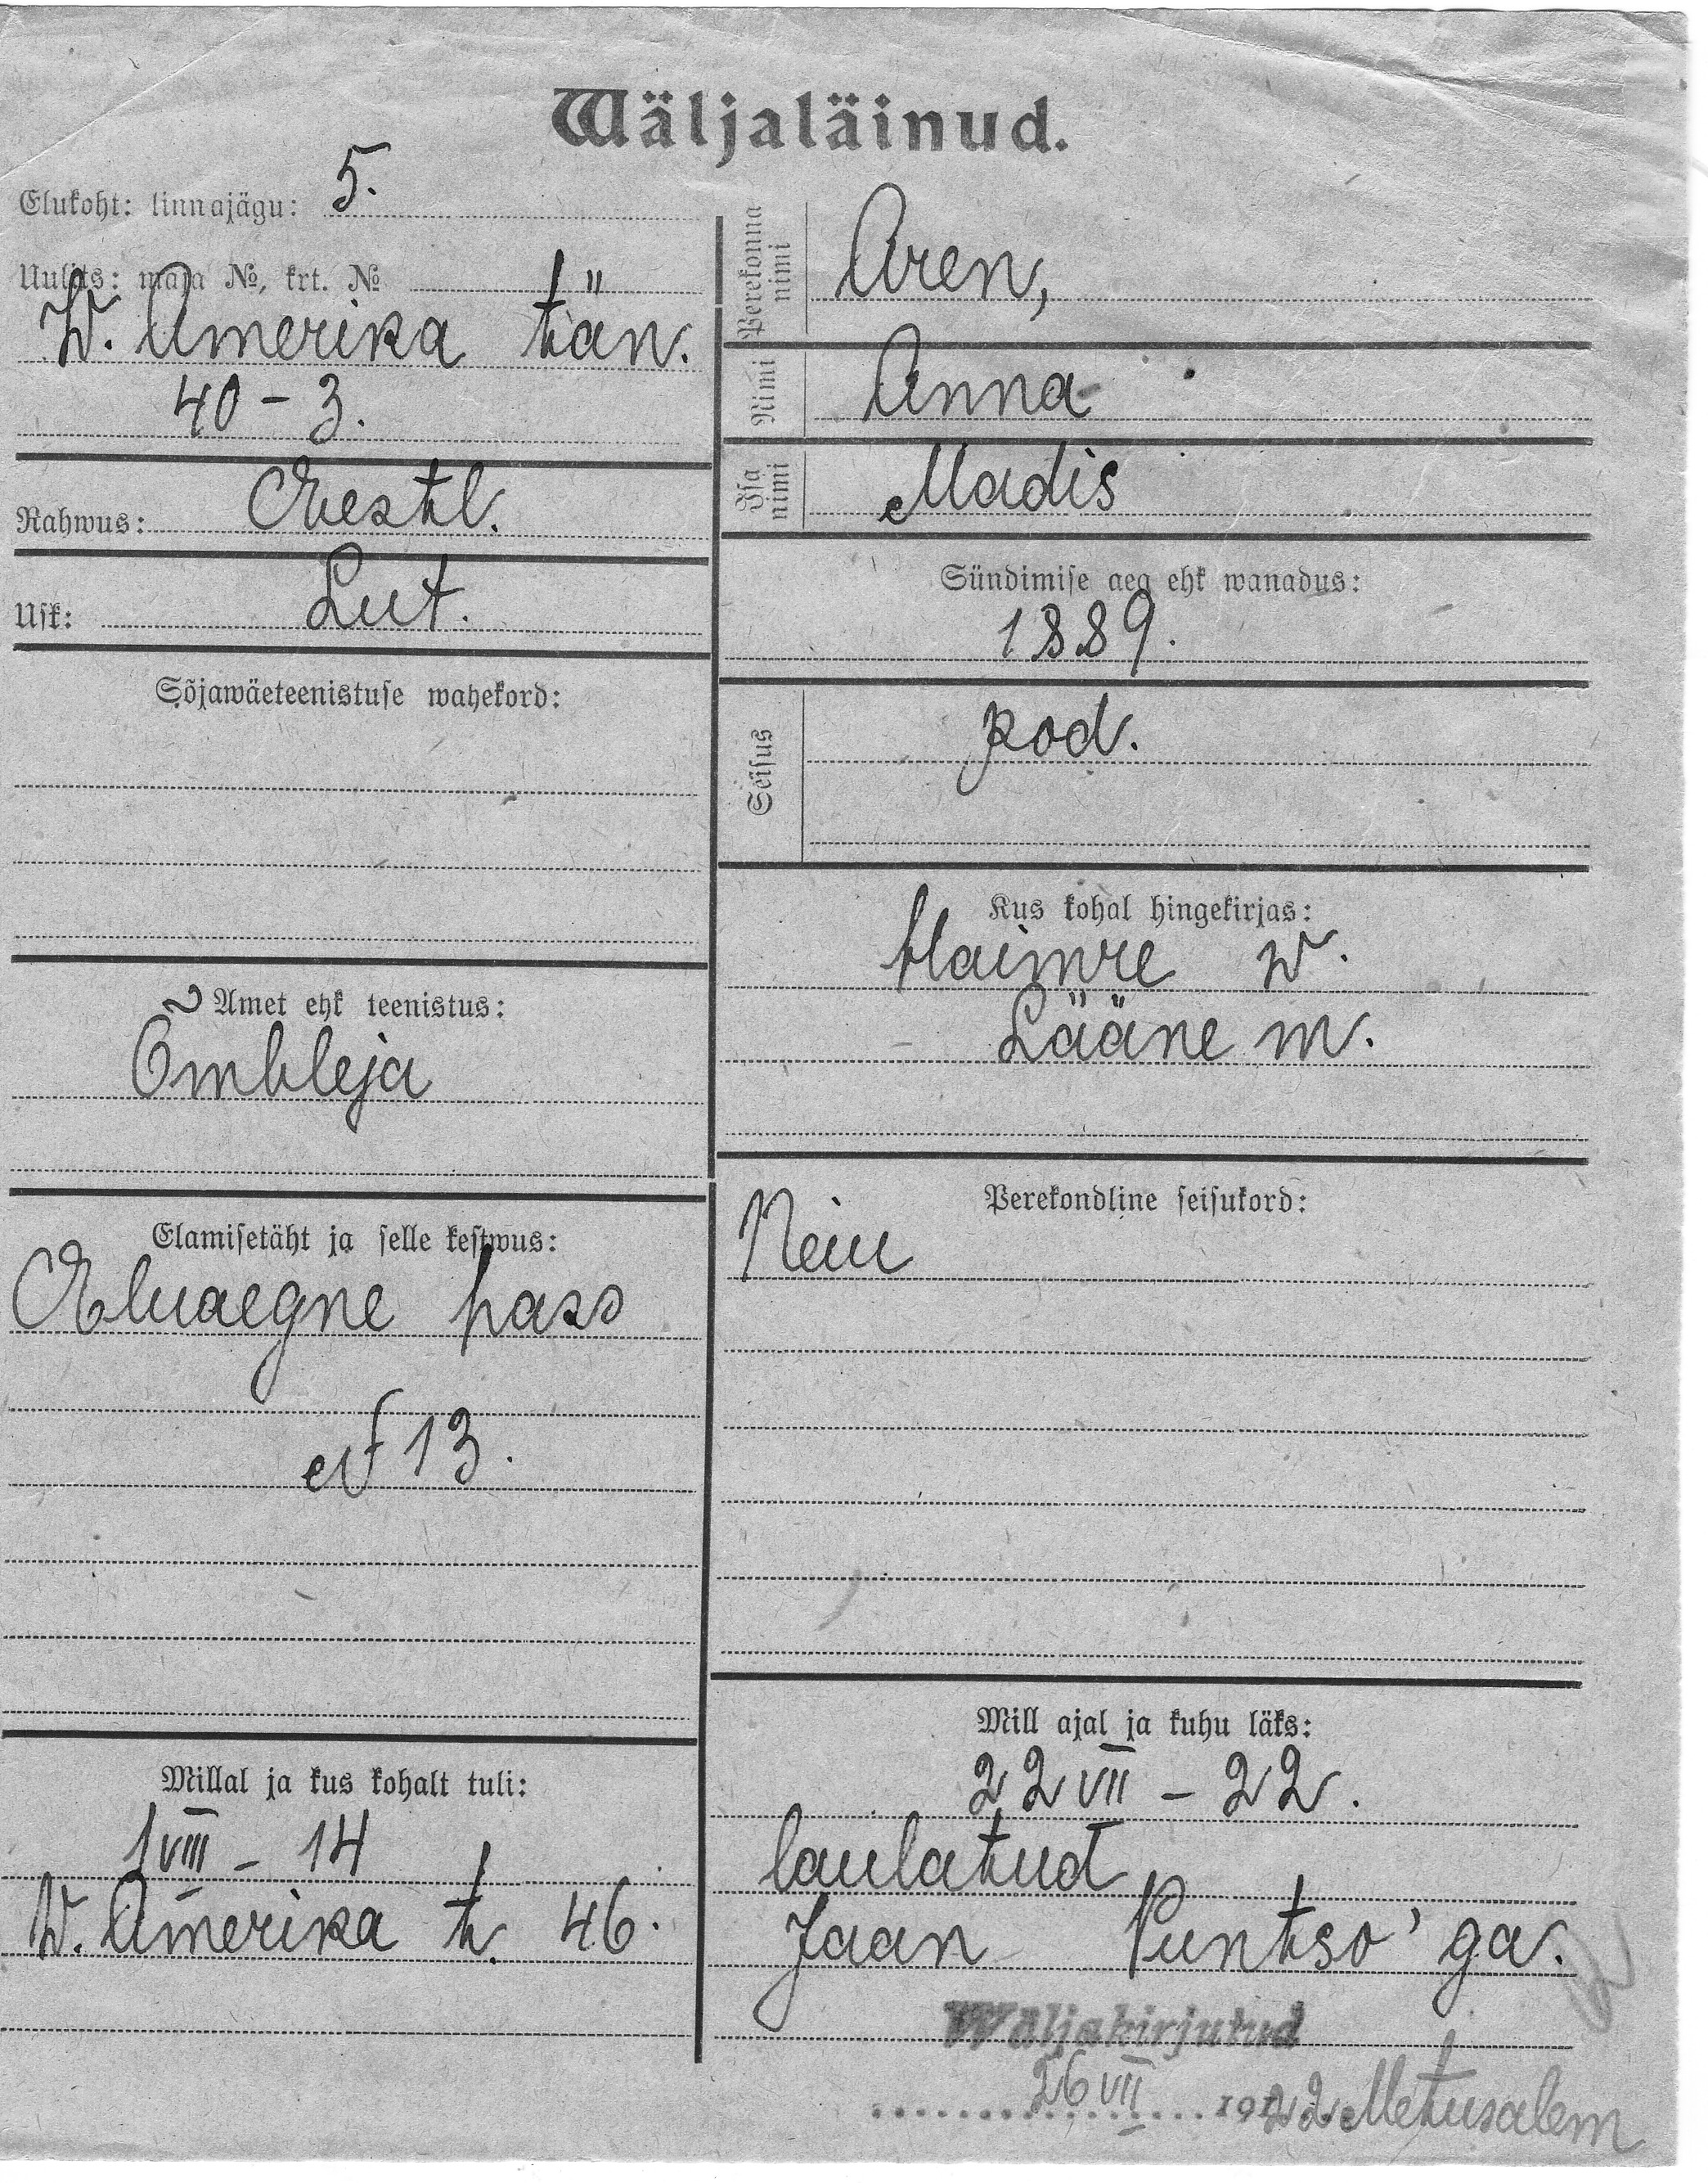 Wäljaläinud.
Elukoht: linnajägu: 5.
Uulits: maja №, krt. №
W. Amerika tän.
40 – 3.
Rahwus: Eestl.
Usk: Lut.
Sõjawäeteenistuse wahekord:
Amet ehk teenistus:
Õmbleja
Elamisetäht ja selle kestwus:
Eluaegne pass
№ 13.
Millal ja kus kohalt tuli:
1 VIII – 14
W. Amerika t. 46.
Perekonna nimi Aren,
Nimi Anna
Isa nimi Madis
Sündimise aeg ehk wanadus:
1889.
Seisus kod.
Kus kohal hingekirjas:
Haimre w.
Lääne m.
Perekondline seisukord:
Neiu
Mill ajal ja kuhu läks:
22 VII – 22.
laulatud
Jaan Puntso'ga.
Wäljakirjutud
26 VII 1922 Metusalem